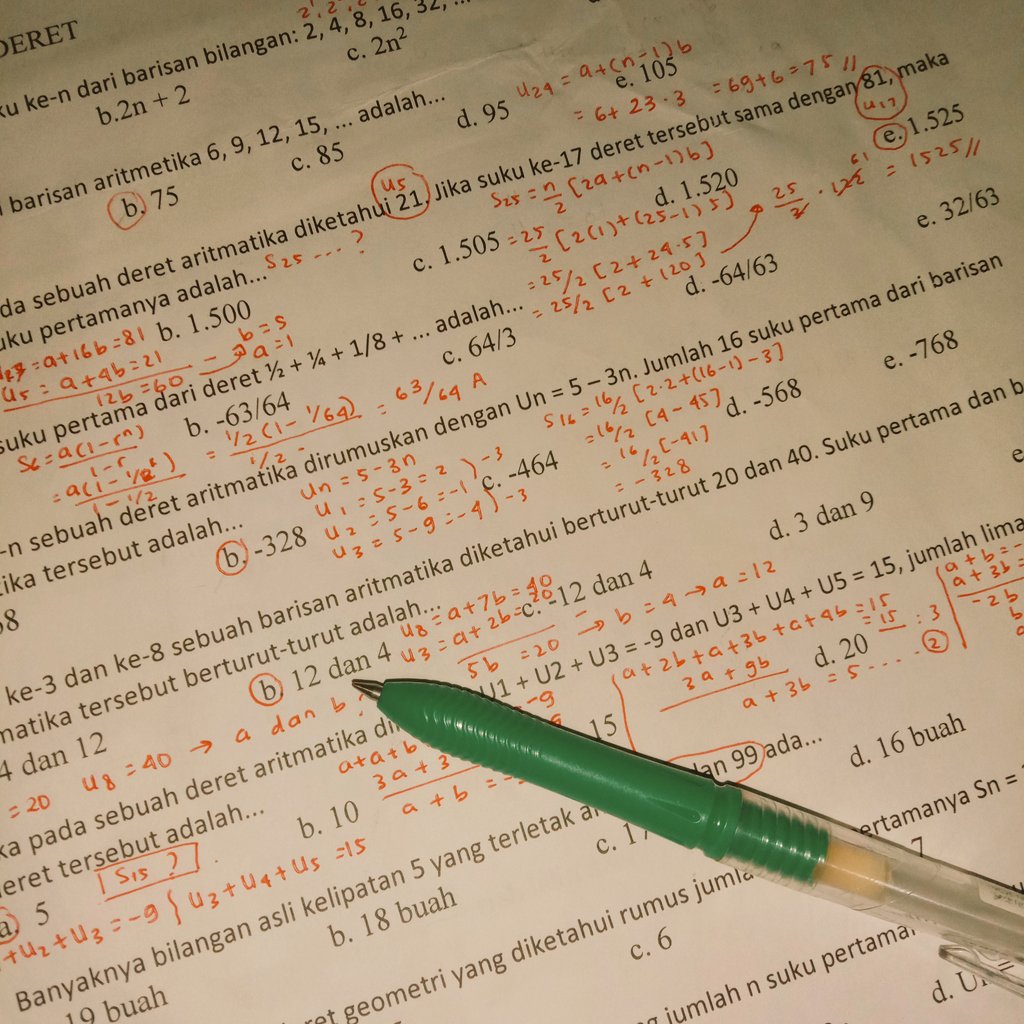 DERET
ke-n dari barisan bilangan: 2, 4, 8, 16, 32, ...
b.2n + 2
c. 2n²
barisan aritmetika 6, 9, 12, 15, ... adalah...
b. 75
c. 85
d. 95
e. 105
U24 = a+(n-1)b
= 6+ 23.3 = 69+6 = 75 //
sebuah deret aritmatika diketahui 21. Jika suku ke-17 deret tersebut sama dengan 81, maka
U5
U17
pertamanya adalah...
S25 ... ?
b. 1.500
c. 1.505
d. 1.520
e. 1.525
S25 = n/2 [2a+(n-1)b]
= 25/2 [2(1)+(25-1)5]
= 25/2 [2+24.5]
= 25/2 [2+120]
= 1525 //
= a+16b = 81
U5 = a+4b = 21
12b = 60
b = 5
a = 1
suku pertama dari deret ½ + ¼ + 1/8 + ... adalah...
b. -63/64
c. 64/3
d. -64/63
e. 32/63
S6 = a(1-rⁿ)
1-r
= 63/64 A
sebuah deret aritmatika dirumuskan dengan Un = 5 – 3n. Jumlah 16 suku pertama dari barisan
tersebut adalah...
b. -328
c. -464
d. -568
e. -768
Un = 5-3n
U1 = 5-3 = 2
U2 = 5-6 = -1
U3 = 5-9 = -4
S16 = 16/2 [2.2+(16-1)-3]
= 16/2 [4-45]
= 16/2 [-41]
= -328
ke-3 dan ke-8 sebuah barisan aritmatika diketahui berturut-turut 20 dan 40. Suku pertama dan
tersebut berturut-turut adalah...
4 dan 12
b. 12 dan 4
c. -12 dan 4
d. 3 dan 9
U8 = a+7b = 40
U3 = a+2b = 20
5b = 20 → b = 4 → a = 12
= 20 U8 = 40 → a dan b
pada sebuah deret aritmatika
U1 + U2 + U3 = -9 dan U3 + U4 + U5 = 15, jumlah lima
tersebut adalah...
a. 5
b. 10
15
d. 20
S15 ?
+U2+U3 = -9
U3+U4+U5 = 15
a+2b+a+3b+a+4b = 15
3a+9b = 15 : 3
a+3b = 5 .... 2
a+b =
a+3b =
-2b
Banyaknya bilangan asli kelipatan 5 yang terletak
dan 99 ada...
19 buah
b. 18 buah
d. 16 buah
geometri yang diketahui rumus
Sn =
c. 6
7
jumlah n suku